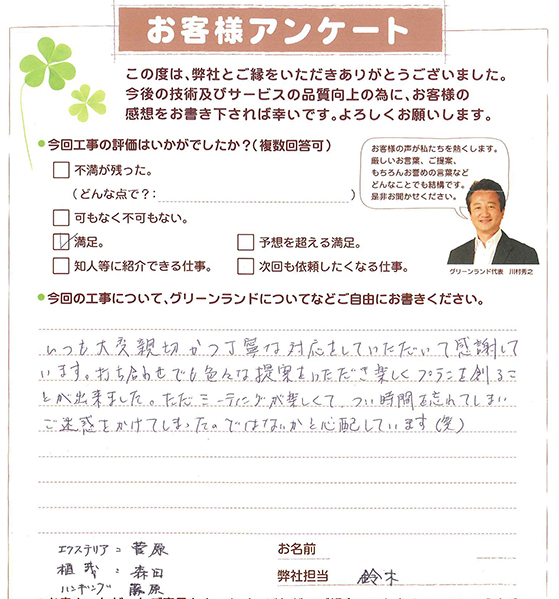 お客様アンケート
この度は、弊社とご縁をいただきありがとうございました。
今後の技術及びサービスの品質向上の為に、お客様の
感想をお書き下されば幸いです。よろしくお願いします。
今回工事の評価はいかがでしたか?(複数回答可)
不満が残った。
(どんな点で?: )
可もなく不可もない。
満足。
予想を超える満足。
知人等に紹介できる仕事。
次回も依頼したくなる仕事。
お客様の声が私たちを熱くします。
厳しいお言葉、ご提案、
もちろんお誉めの言葉など
どんなことでも結構です。
是非お聞かせください。
グリーンランド代表 川村秀之
今回の工事について、グリーンランドについてなどご自由にお書きください。
いつも大変親切かつ丁寧な対応をしていただいて感謝して
います。打ち合わせでも色々な提案をいただき楽しくプランを創るこ
とが出来ました。ただミーティングが楽しくてつい時間を忘れてしまい
ご迷惑をかけてしまったのではないかと心配しています(笑)
エクステリア:菅原
植栽:森田
藤原
お名前
弊社担当 鈴木